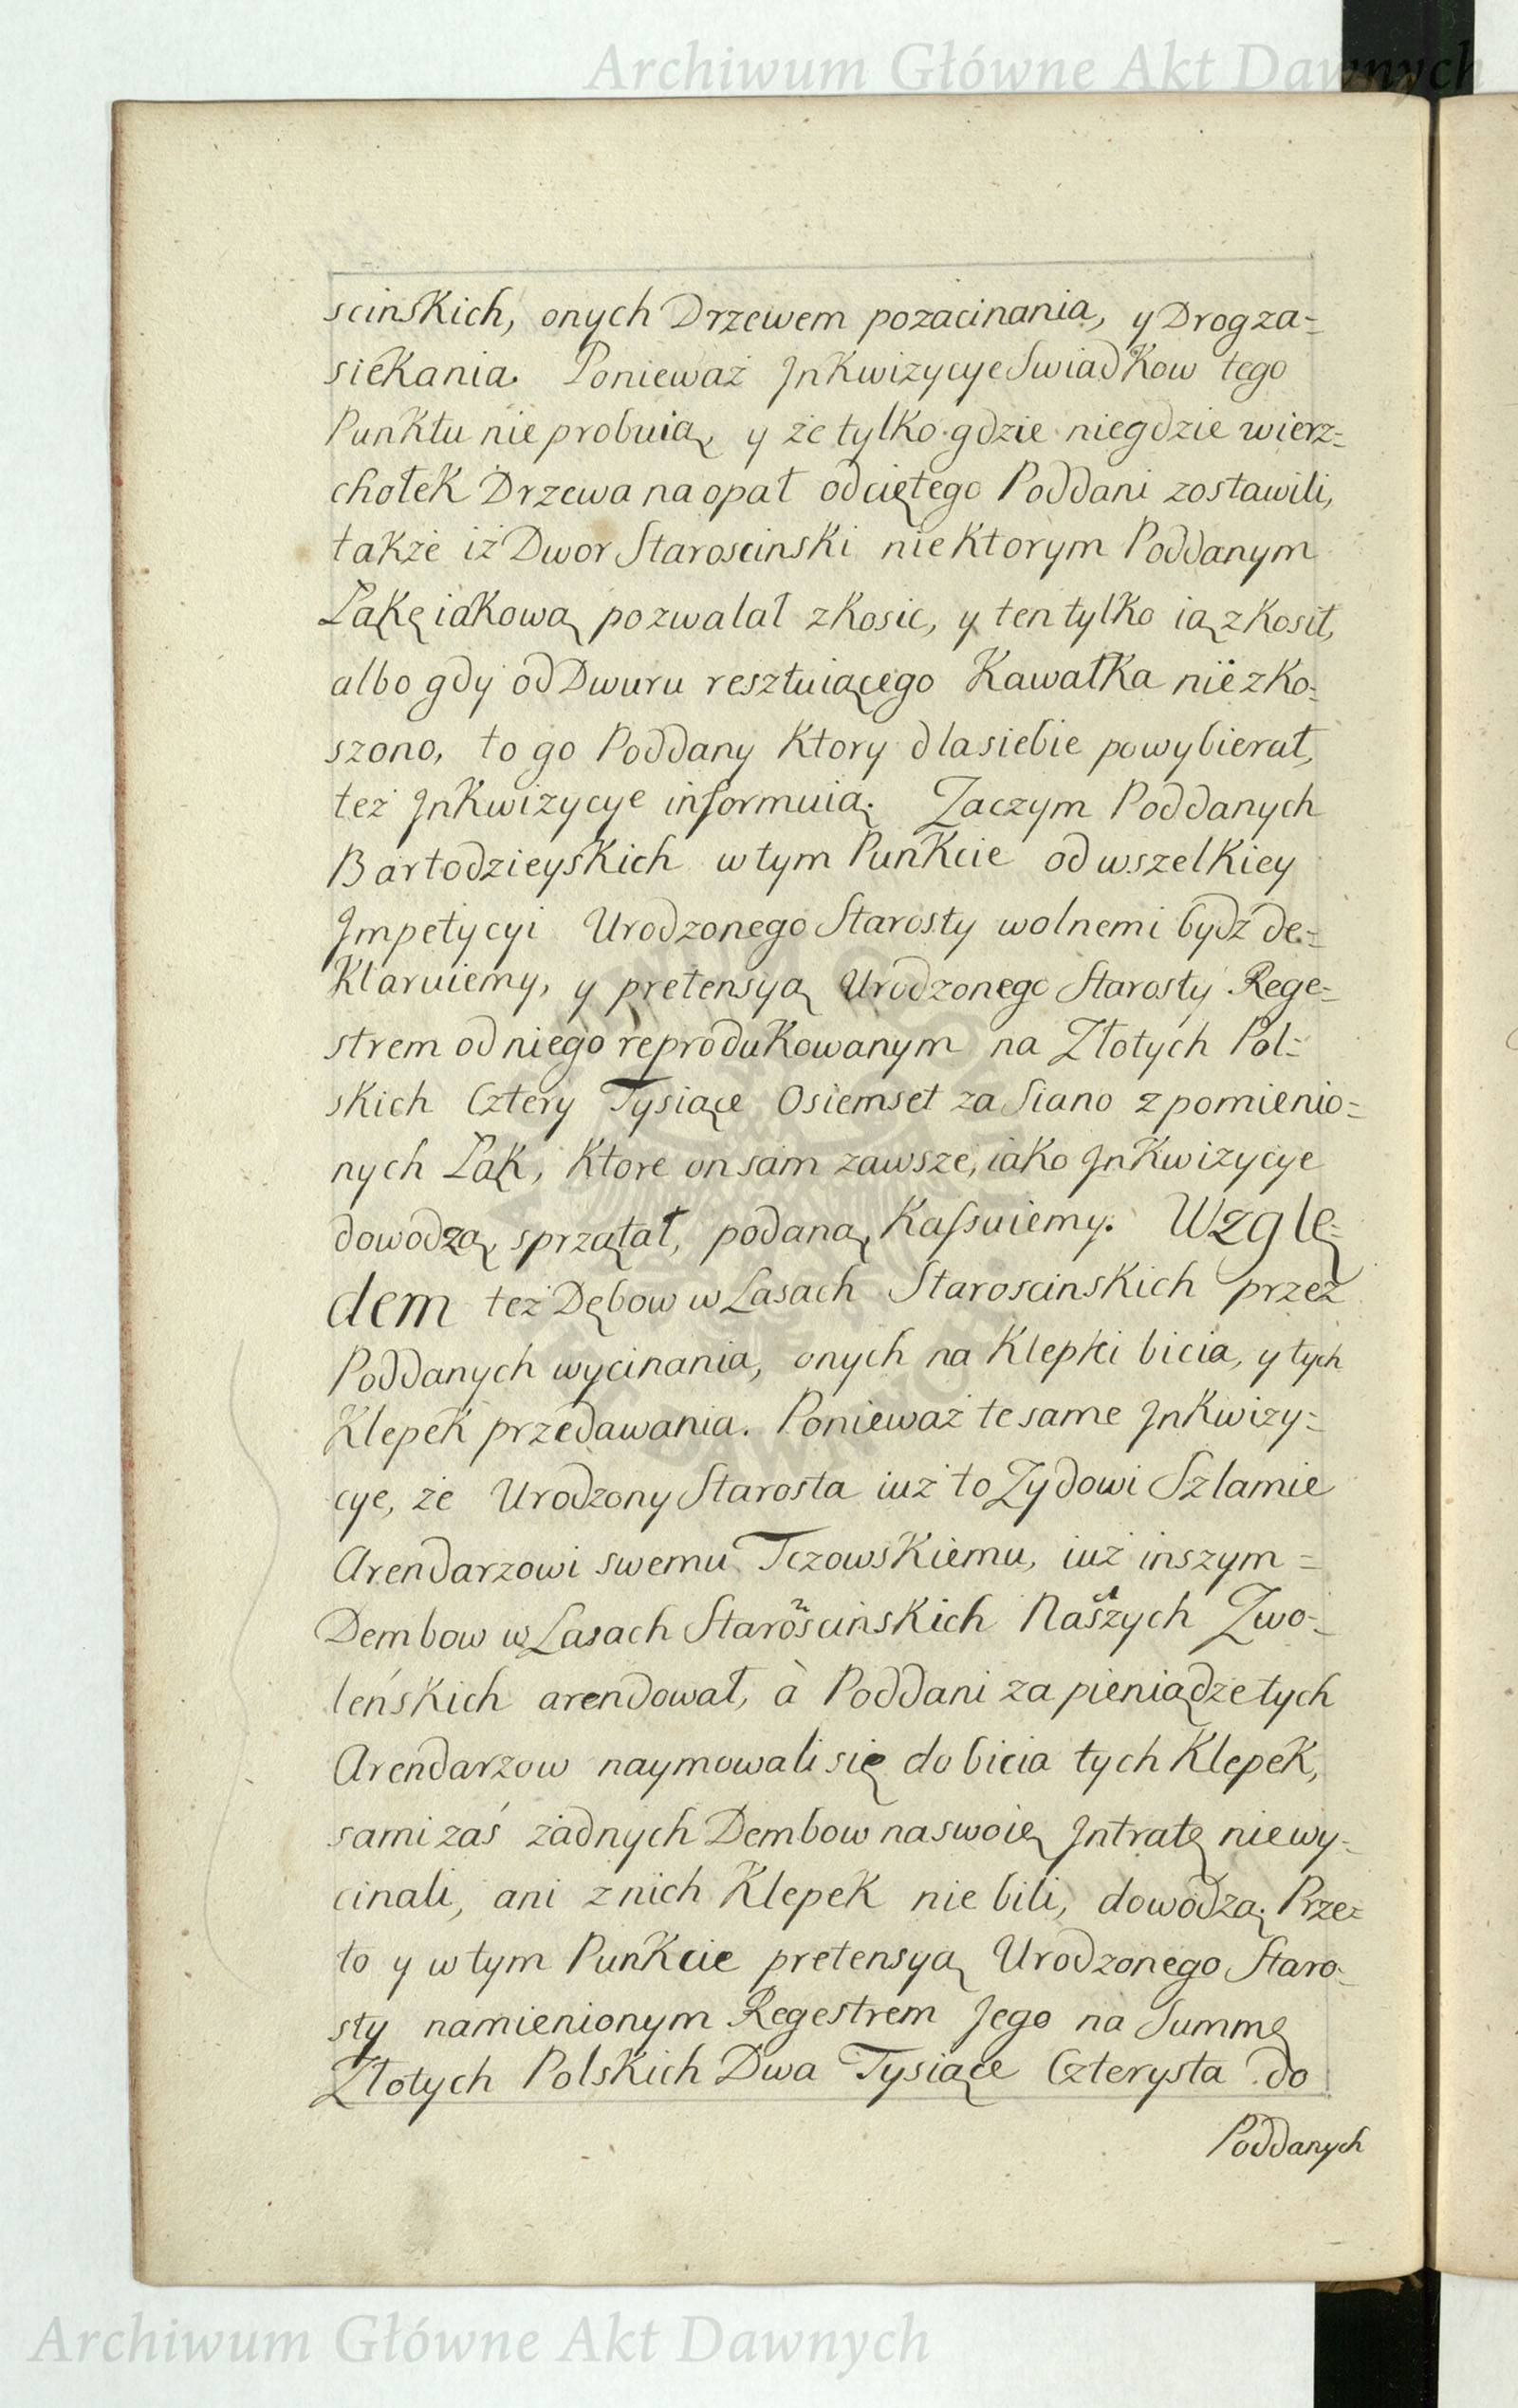 Archiwum Główne Akt Dawnych
scinskich, onych Drzewem pozacinania, y Drog za=
siekania. Ponieważ Jnkwizycye Swiadkow tego
Punktu nie probuią, y że tylko gdzie niegdzie wierz=
chołek Drzewa na opał odciętego Poddani zostawili,
także iż Dwor Staroscinski niektorym Poddanym
Łąkę iakową pozwalał zkosic, y ten tylko ią zkosił,
albo gdy od Dwuru resztuiącego Kawałka nie zko=
szono, to go Poddany ktory dla siebie powybierał,
też Jnkwizycye informuią. Zaczym Poddanych
Bartodzieyskich w tym Punkcie od wszelkiey
Jmpetycyi Urodzonego Starosty wolnemi bydź de=
klaruiemy, y pretensyą Urodzonego Starosty Rege=
strem od niego reprodukowanym na Złotych Pol=
skich Cztery Tysiące Osiemset za Siano z pomienio=
nych Łąk, ktore on sam zawsze, iako Jnkwizycye
dowodzą, sprzątał, podaną, Kassuiemy. Wzglę=
dem też Dębow w Lasach Staroscinskich przez
Poddanych wycinania, onych na Klepki bicia, y tych
Klepek przedawania. Ponieważ te same Jnkwizy=
cye, że Urodzony Starosta iuż to Zydowi Szlamie
Arendarzowi swemu Tczowskiemu, iuż inszym =
Dembow w Lasach Staroscinskich Naszych Zwo=
leńskich arendował, à Poddani za pieniądze tych
Arendarzow naymowali się do bicia tych Klepek,
sami zaś żadnych Dembow na swoię Jntratę nie wy=
cinali, ani z nich Klepek nie bili, dowodzą. Prze=
to y w tym Punkcie pretensyą Urodzonego Staro=
sty namienionym Regestrem Jego na Summę
Złotych Polskich Dwa Tysiące Czterysta do
Poddanych
Archiwum Główne Akt Dawnych